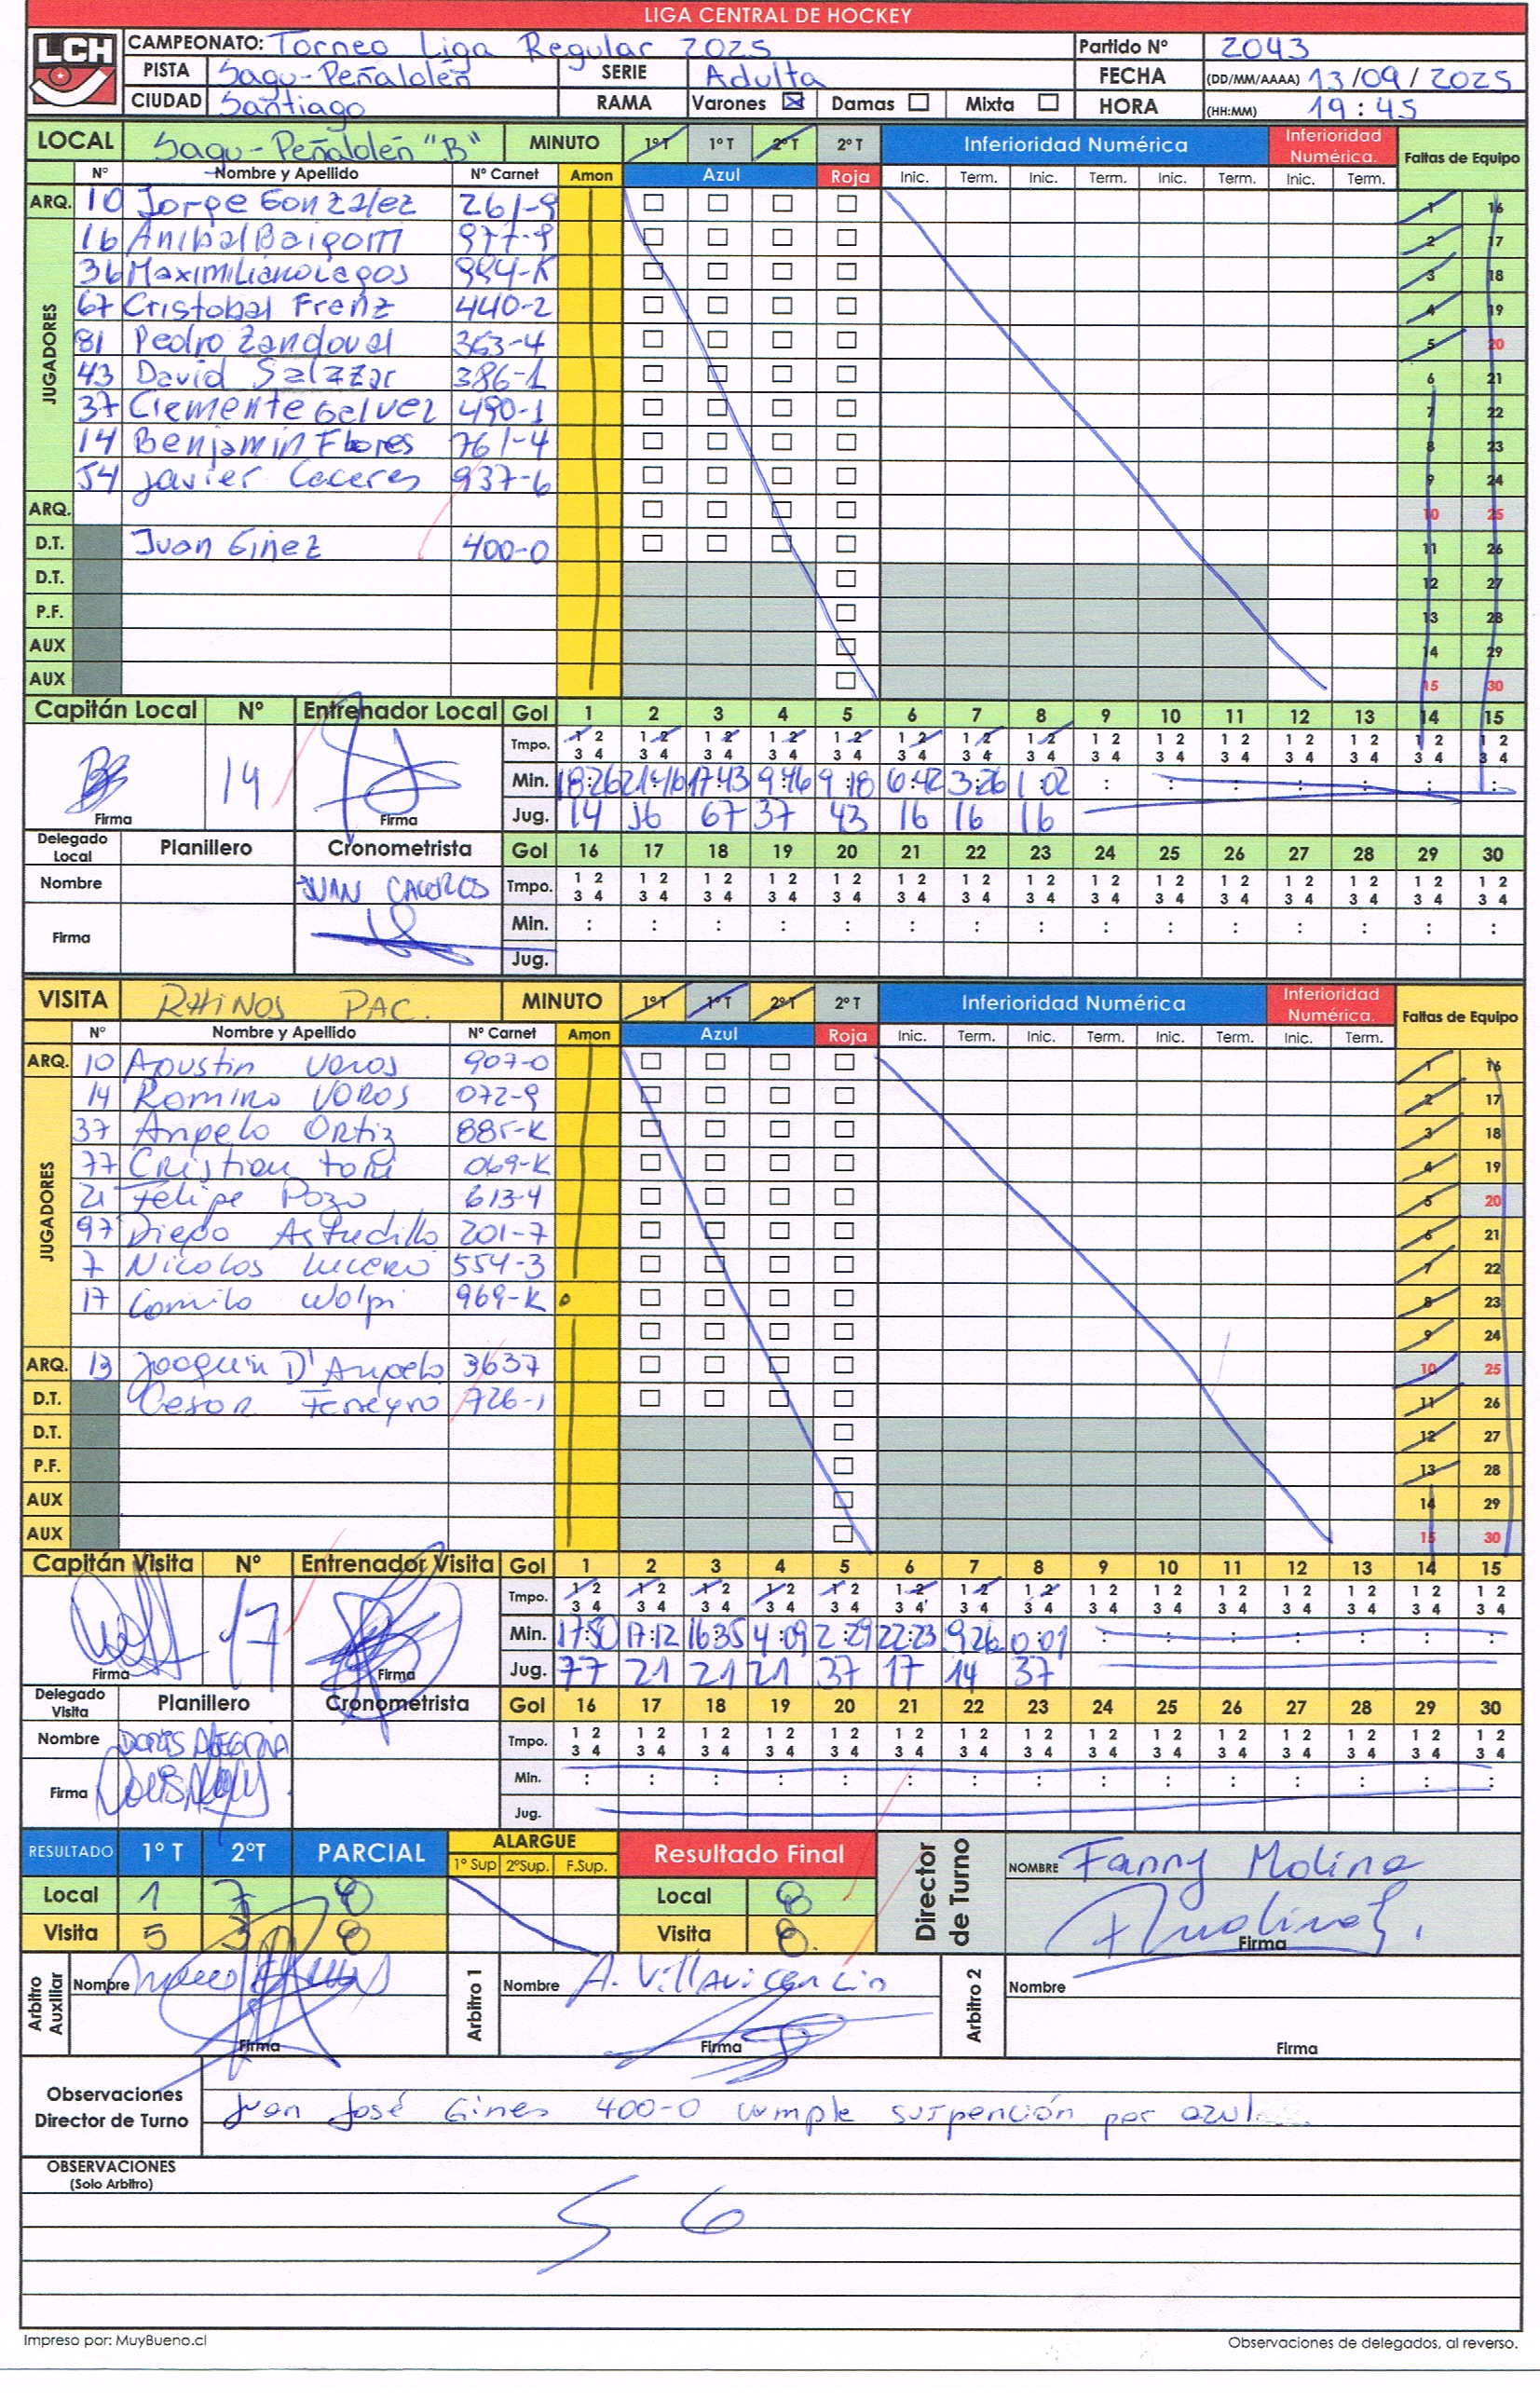 LIGA CENTRAL DE HOCKEY
LCH
CAMPEONATO: Torneo Liga Regular 2025 Partido Nº 2043
PISTA Sagu-Peñalolén SERIE Adulta FECHA (DD/MM/AAAA) 13/09/2025
CIUDAD Santiago RAMA Varones Damas Mixta HORA (HH:MM) 19:45
LOCAL Sagu-Peñalolén "B" MINUTO 1ºT 1ºT 2ºT 2ºT Inferioridad Numérica Inferioridad Numérica. Faltas de Equipo
Nº Nombre y Apellido Nº Carnet Amon Azul Roja Inic. Term. Inic. Term. Inic. Term. Inic. Term.
ARQ. 10 Jorge Gonzalez 261-9 1 16
JUGADORES
16 Anibal Baigorri 977-9 2 17
36 Maximiliano Lagos 994-K 3 18
67 Cristobal Frenz 440-2 4 19
81 Pedro Zandoval 363-4 5 20
43 David Salazar 386-1 6 21
37 Clemente Galvez 490-1 7 22
14 Benjamin Flores 761-4 8 23
54 Javier Caceres 937-6 9 24
ARQ. 10 25
D.T. Juan Giñez 400-0 11 26
D.T. 12 27
P.F. 13 28
AUX 14 29
AUX 15 30
Capitán Local Nº Entrenador Local Gol 1 2 3 4 5 6 7 8 9 10 11 12 13 14 15
Tmpo. 1 2 1 2 1 2 1 2 1 2 1 2 1 2 1 2 1 2 1 2 1 2 1 2 1 2 1 2 1 2
3 4 3 4 3 4 3 4 3 4 3 4 3 4 3 4 3 4 3 4 3 4 3 4 3 4 3 4 3 4
14 Min. 18:26 21:46 17:43 9:46 9:18 6:42 3:26 1:02 : : : : : : :
Firma Firma Jug. 14 36 67 37 43 16 16 16
Delegado Local Planillero Cronometrista Gol 16 17 18 19 20 21 22 23 24 25 26 27 28 29 30
Nombre JUAN CACERES Tmpo. 1 2 1 2 1 2 1 2 1 2 1 2 1 2 1 2 1 2 1 2 1 2 1 2 1 2 1 2 1 2
3 4 3 4 3 4 3 4 3 4 3 4 3 4 3 4 3 4 3 4 3 4 3 4 3 4 3 4 3 4
Firma Min. : : : : : : : : : : : : : : :
Jug.
VISITA RHINOS PAC. MINUTO 1ºT 1ºT 2ºT 2ºT Inferioridad Numérica Inferioridad Numérica. Faltas de Equipo
Nº Nombre y Apellido Nº Carnet Amon Azul Roja Inic. Term. Inic. Term. Inic. Term. Inic. Term.
ARQ. 10 Agustin Veros 907-0 1 16
JUGADORES
14 Romino VOROS 072-9 2 17
37 Angelo Ortiz 885-K 3 18
77 Cristian 069-K 4 19
21 Felipe Pozo 613-4 5 20
97 Diego Astudillo 201-7 6 21
7 Nicolas Lucero 554-3 7 22
17 Camilo Wolpi 969-K 8 23
9 24
ARQ. 13 Joaquin D'Angelo 3637 10 25
D.T. Cesar Ferreyro 726-1 11 26
D.T. 12 27
P.F. 13 28
AUX 14 29
AUX 15 30
Capitán Visita Nº Entrenador Visita Gol 1 2 3 4 5 6 7 8 9 10 11 12 13 14 15
Tmpo. 1 2 1 2 1 2 1 2 1 2 1 2 1 2 1 2 1 2 1 2 1 2 1 2 1 2 1 2 1 2
3 4 3 4 3 4 3 4 3 4 3 4 3 4 3 4 3 4 3 4 3 4 3 4 3 4 3 4 3 4
17 Min. 17:50 17:12 16:35 4:09 2:29 22:23 9:26 0:01 : : : : : : :
Firma Firma Jug. 77 21 21 21 37 17 14 37
Delegado Visita Planillero Cronometrista Gol 16 17 18 19 20 21 22 23 24 25 26 27 28 29 30
Nombre DORIS ALEGRIA Tmpo. 1 2 1 2 1 2 1 2 1 2 1 2 1 2 1 2 1 2 1 2 1 2 1 2 1 2 1 2 1 2
3 4 3 4 3 4 3 4 3 4 3 4 3 4 3 4 3 4 3 4 3 4 3 4 3 4 3 4 3 4
Firma Min. : : : : : : : : : : : : : : :
Jug.
RESULTADO 1º T 2ºT PARCIAL ALARGUE 1º Sup 2ºSup. F.Sup. Resultado Final Director de Turno NOMBRE Fanny Molina
Local 1 7 8 Local 8
Visita 5 3 8 Visita 8. Firma
Arbitro Auxiliar Nombre Firma Arbitro 1 Nombre A. Villavicencio Firma Arbitro 2 Nombre Firma
Observaciones Director de Turno Juan José Gines 400-0 cumple suspención por azul
OBSERVACIONES
(Solo Arbitro)
S G
Impreso por: MuyBueno.cl Observaciones de delegados, al reverso.